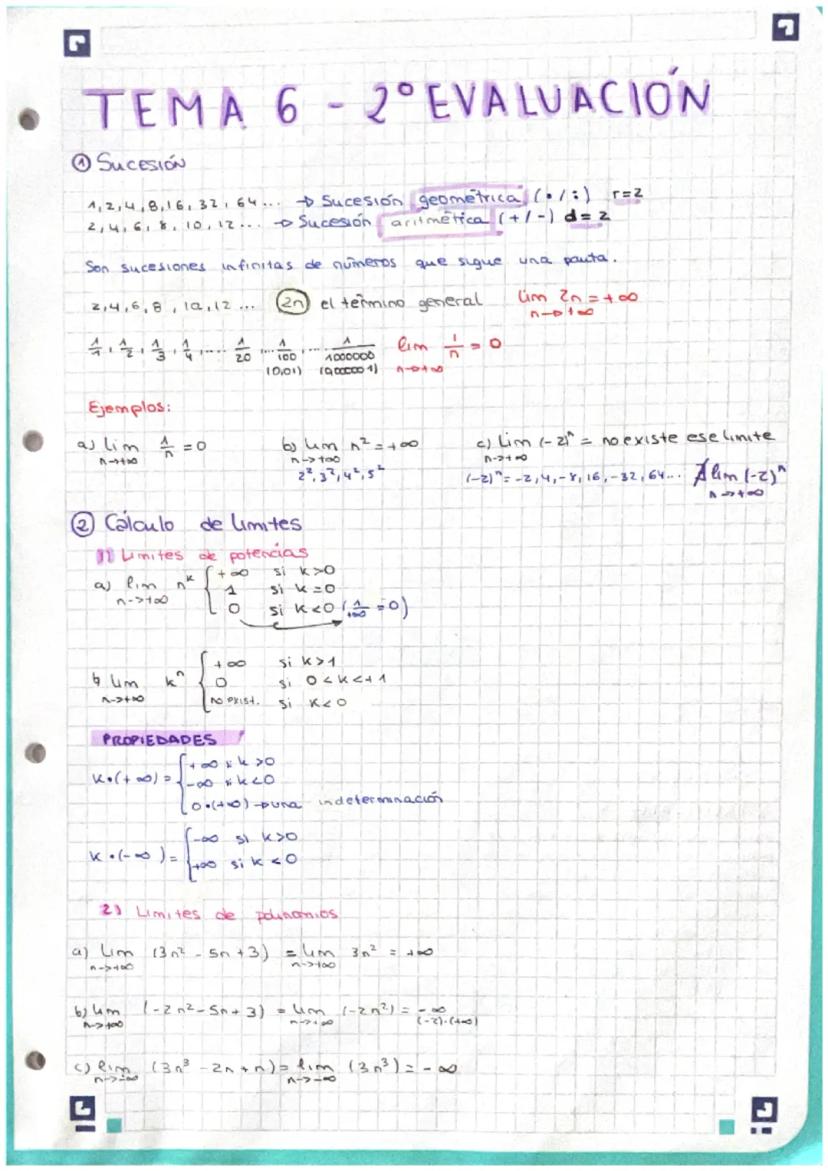 TEMA 6 - 2º EVALUACIÓN
① Sucesión
1, 2, 4, 8, 16, 32, 64 ... → Sucesión geométrica (· / :) r=2
2, 4, 6, 8, 10, 12 ... → Sucesión aritmética (+ / -) d=2
Son sucesiones infinitas de números que sigue una pauta.
2, 4, 6, 8, 10, 12 ... (2n) el término general lim 2n = +∞
n→+∞
1/1, 1/2, 1/3, 1/4, .... 1/20 ... 1/100 ... 1/1000000 lim 1/n = 0
(0,01) (0,000001) n→+∞
Ejemplos:
a) lim 1/n = 0 b) lim n² = +∞ c) lim (-2)ⁿ = no existe ese limite
n→+∞ n→+∞ n→+∞
2², 3², 4², 5² (-2)ⁿ = -2, 4, -8, 16, -32, 64... ∄ lim (-2)ⁿ
n→+∞
② Cálculo de limites
1) Limites de potencias
a) lim nᵏ { +∞ si k>0
n→+∞ 1 si k=0
0 si k<0 (1/+∞ = 0)
b lim kⁿ { +∞ si k>1
n→+∞ 0 si 0<k<+1
no exist. si k<0
PROPIEDADES
k·(+∞) = { +∞ si k>0
-∞ si k<0
0·(+∞) → una indeterminación
k·(-∞) = { -∞ si k>0
+∞ si k<0
2) Limites de polinomios
a) lim (3n² - 5n + 3) = lim 3n² = +∞
n→+∞ n→+∞
b) lim (-2n² - 5n + 3) = lim (-2n²) = -∞
n→+∞ n→+∞ (-2)·(+∞)
c) lim (3n³ - 2n + n) = lim (3n³) = -∞
n→-∞ n→-∞